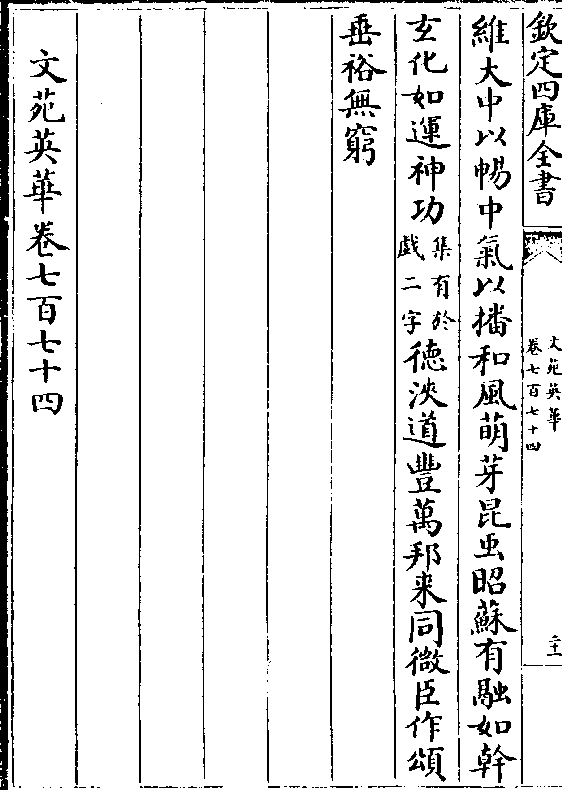 欽定四庫全書
文苑英華
卷七百七十四
二十一
維大中以暢中氣以播和風萌芽昆虫昭蘇有融如幹
玄化如運神功集有於戲二字德浹道豐萬邦来同微臣作頌
垂裕無窮
文苑英華卷七百七十四